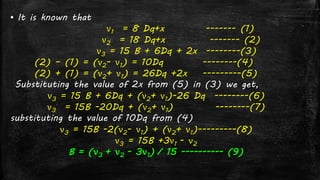 • It is known that
ν₁ = 8 Dq+x ------- (1)
ν₂ = 18 Dq+x ------- (2)
ν₃ = 15 B + 6Dq + 2x --------(3)
(2) – (1) = (ν₂- ν₁) = 10Dq --------(4)
(2) + (1) = (ν₂+ ν₁) = 26Dq +2x ---------(5)
Substituting the value of 2x from (5) in (3) we get,
ν₃ = 15 B + 6Dq + (ν₂+ ν₁)-26 Dq --------(6)
ν₃ = 15B -20Dq + (ν₂+ ν₁) --------(7)
substituting the value of 10Dq from (4)
ν₃ = 15B -2(ν₂- ν₁) + (ν₂+ ν₁)---------(8)
ν₃ = 15B +3ν₁ - ν₂
B = (ν₃ + ν₂ - 3ν₁) / 15 ---------- (9)